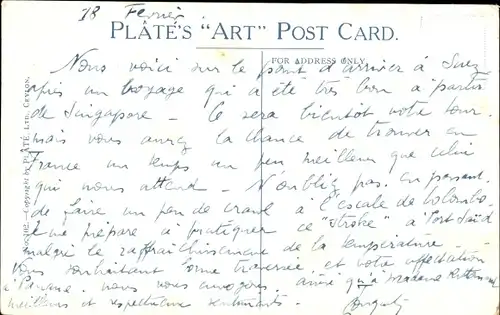 18 Fevrier
PLÂTÉ'S "ART" POST CARD.
FOR ADDRESS ONLY.
Nous voici sur le point d'arriver à Suez
après un voyage qui a été très bon à partir
de Singapore — Ce sera bientôt votre tour.
mais vous aurez la chance de trouver en
France un temps un peu meilleur que celui
qui nous attend — N'oubliez pas, en passant
de faire un peu de crawl à l'escale de Colombo.
Je me prépare à pratiquer ce "stroke" à Port Saïd
malgré le raffraîchissement de la température —
Vous souhaitant bonne traversée et votre affectation
à nous vous envoyons, ainsi qu'à Madame
meilleurs et respectueux sentiments.
Copyright by PLÂTÉ LTD. CEYLON.